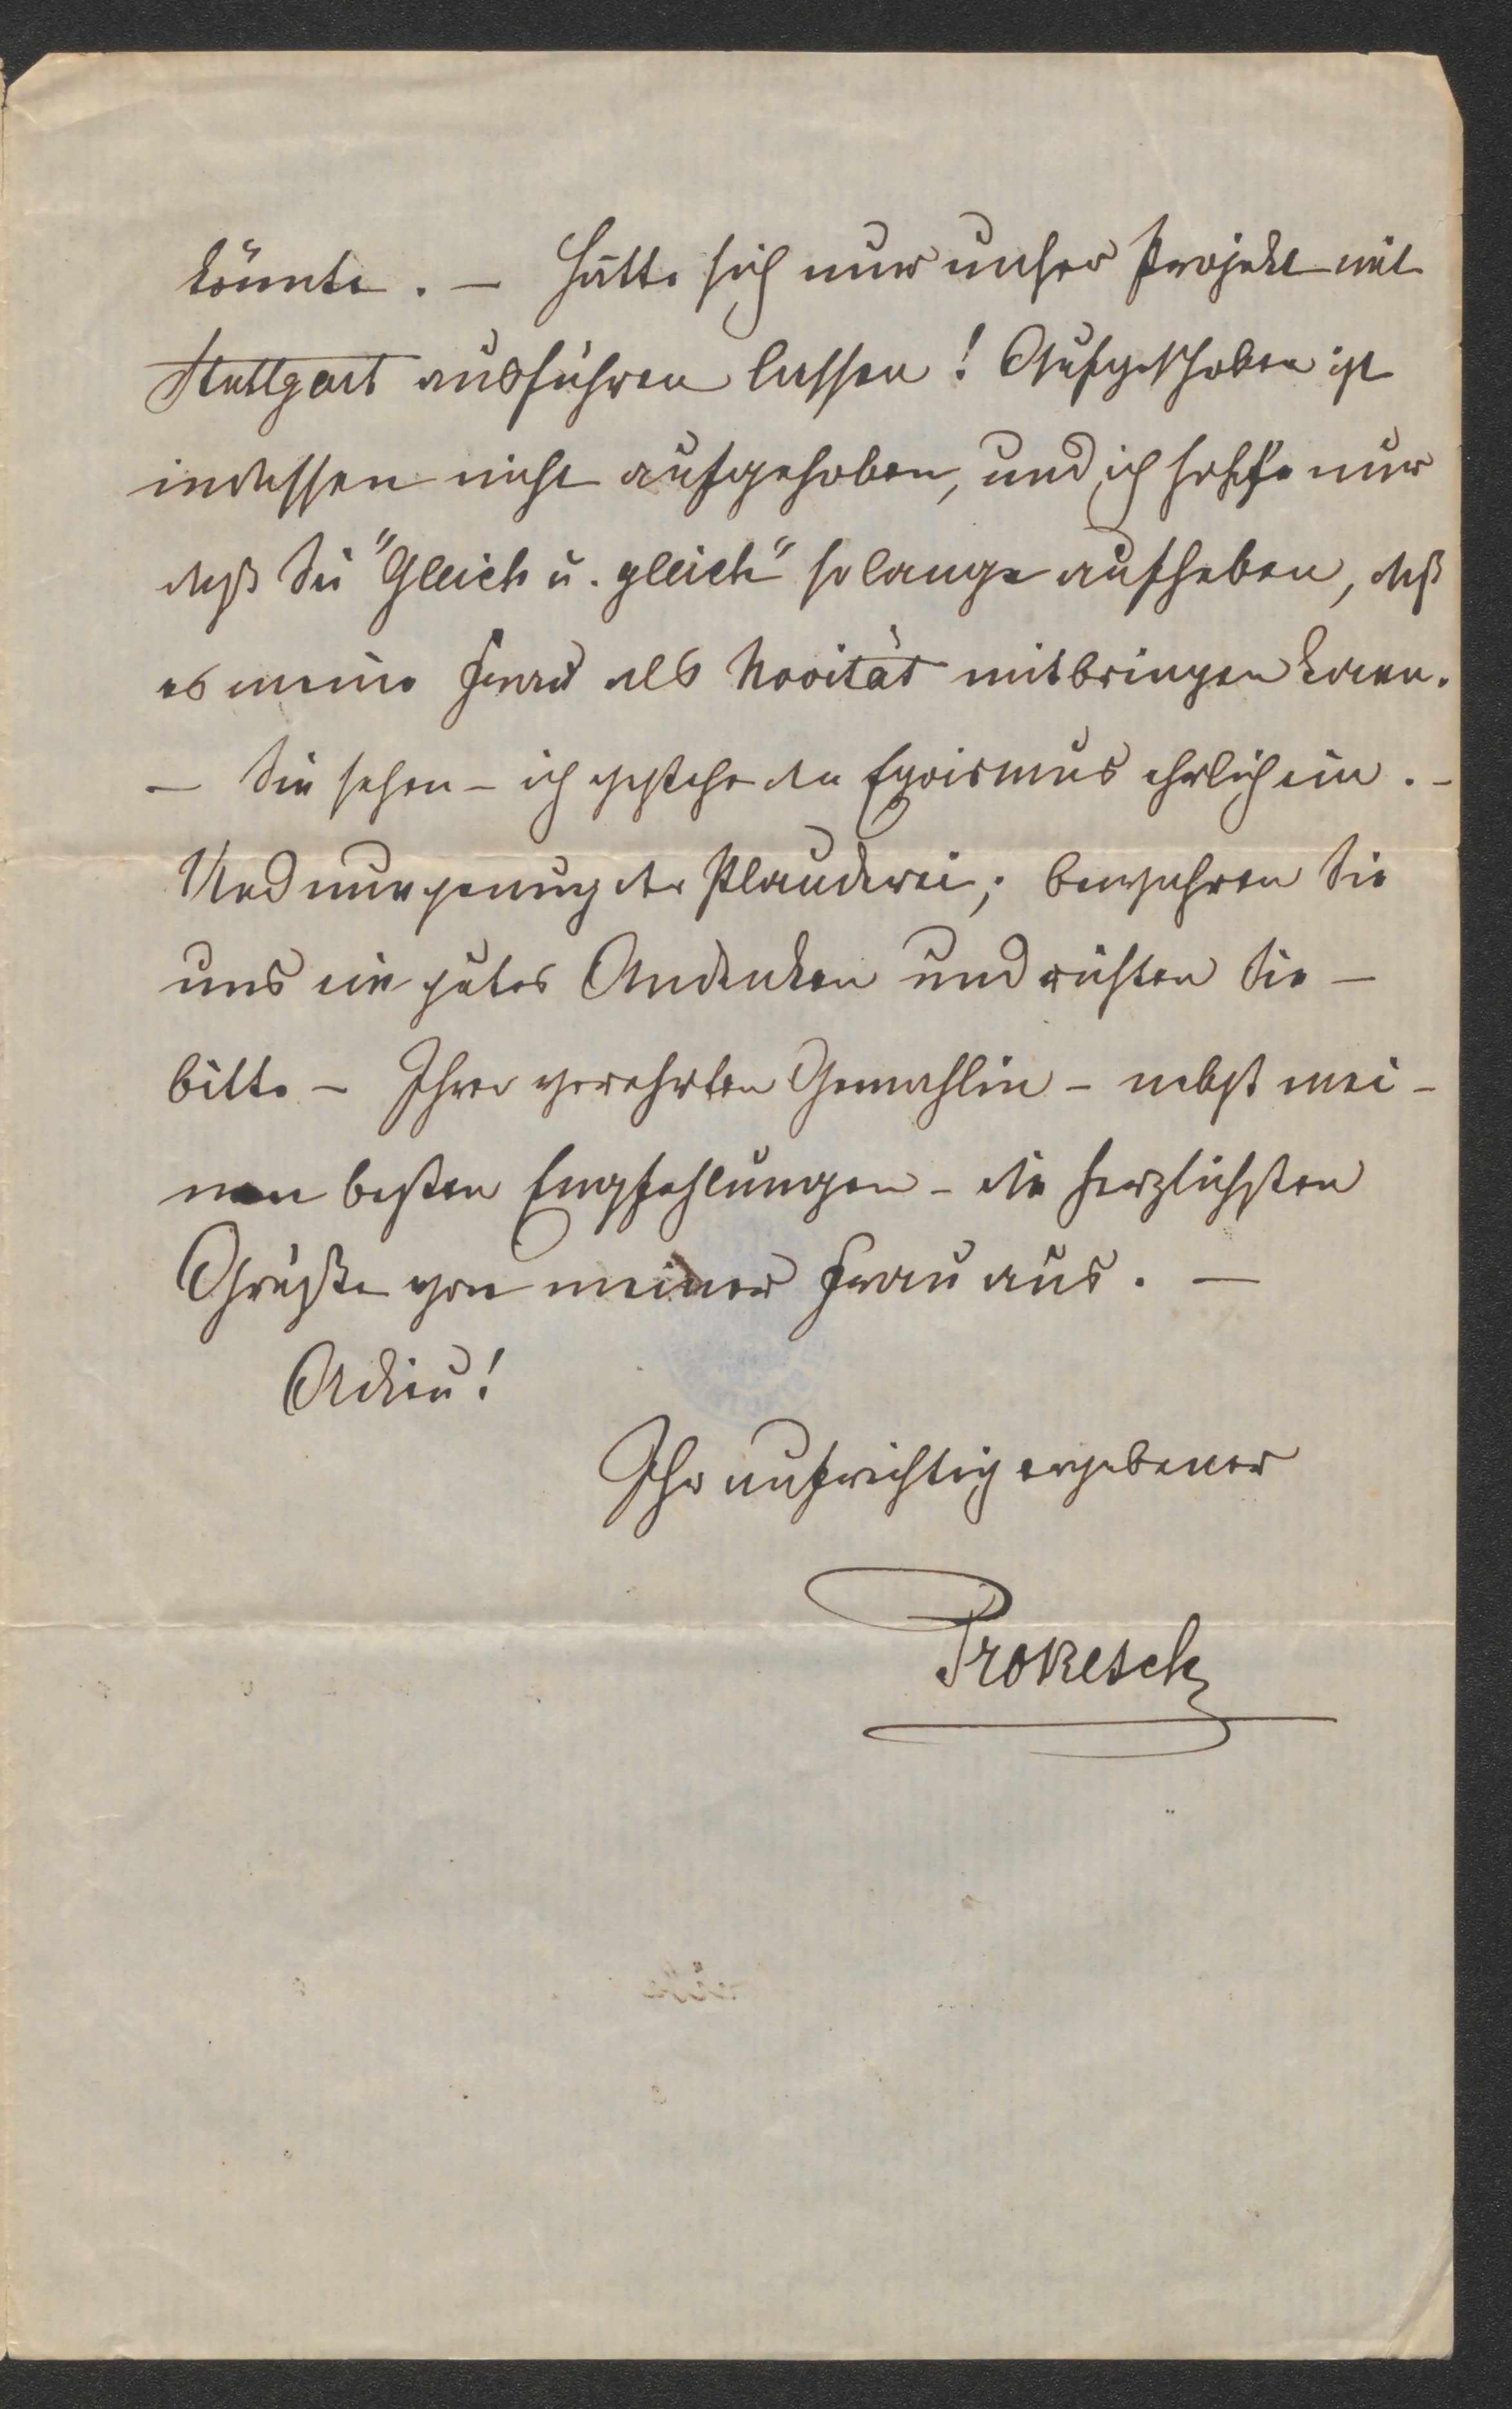 könnte. – Hätte sich nur unser Projekt mit
Stuttgart ausführen lassen! Aufgeschoben ist
indessen nicht aufgehoben, und ich hoffe nur
daß Sie "Gleich u. gleich" so lange aufheben, daß
es meine Frau als Novität mitbringen kann.
– Sie sehen – ich gestehe den Egoismus ehrlich ein. –
Und nun genug der Plauderei; bewahren Sie
uns ein gutes Andenken und richten Sie –
bitte – Ihrer verehrten Gemahlin – nebst mei-
nen besten Empfehlungen – die herzlichsten
Grüße von meiner Frau aus. –
Adieu!
Ihr aufrichtig ergebener
Prokesch